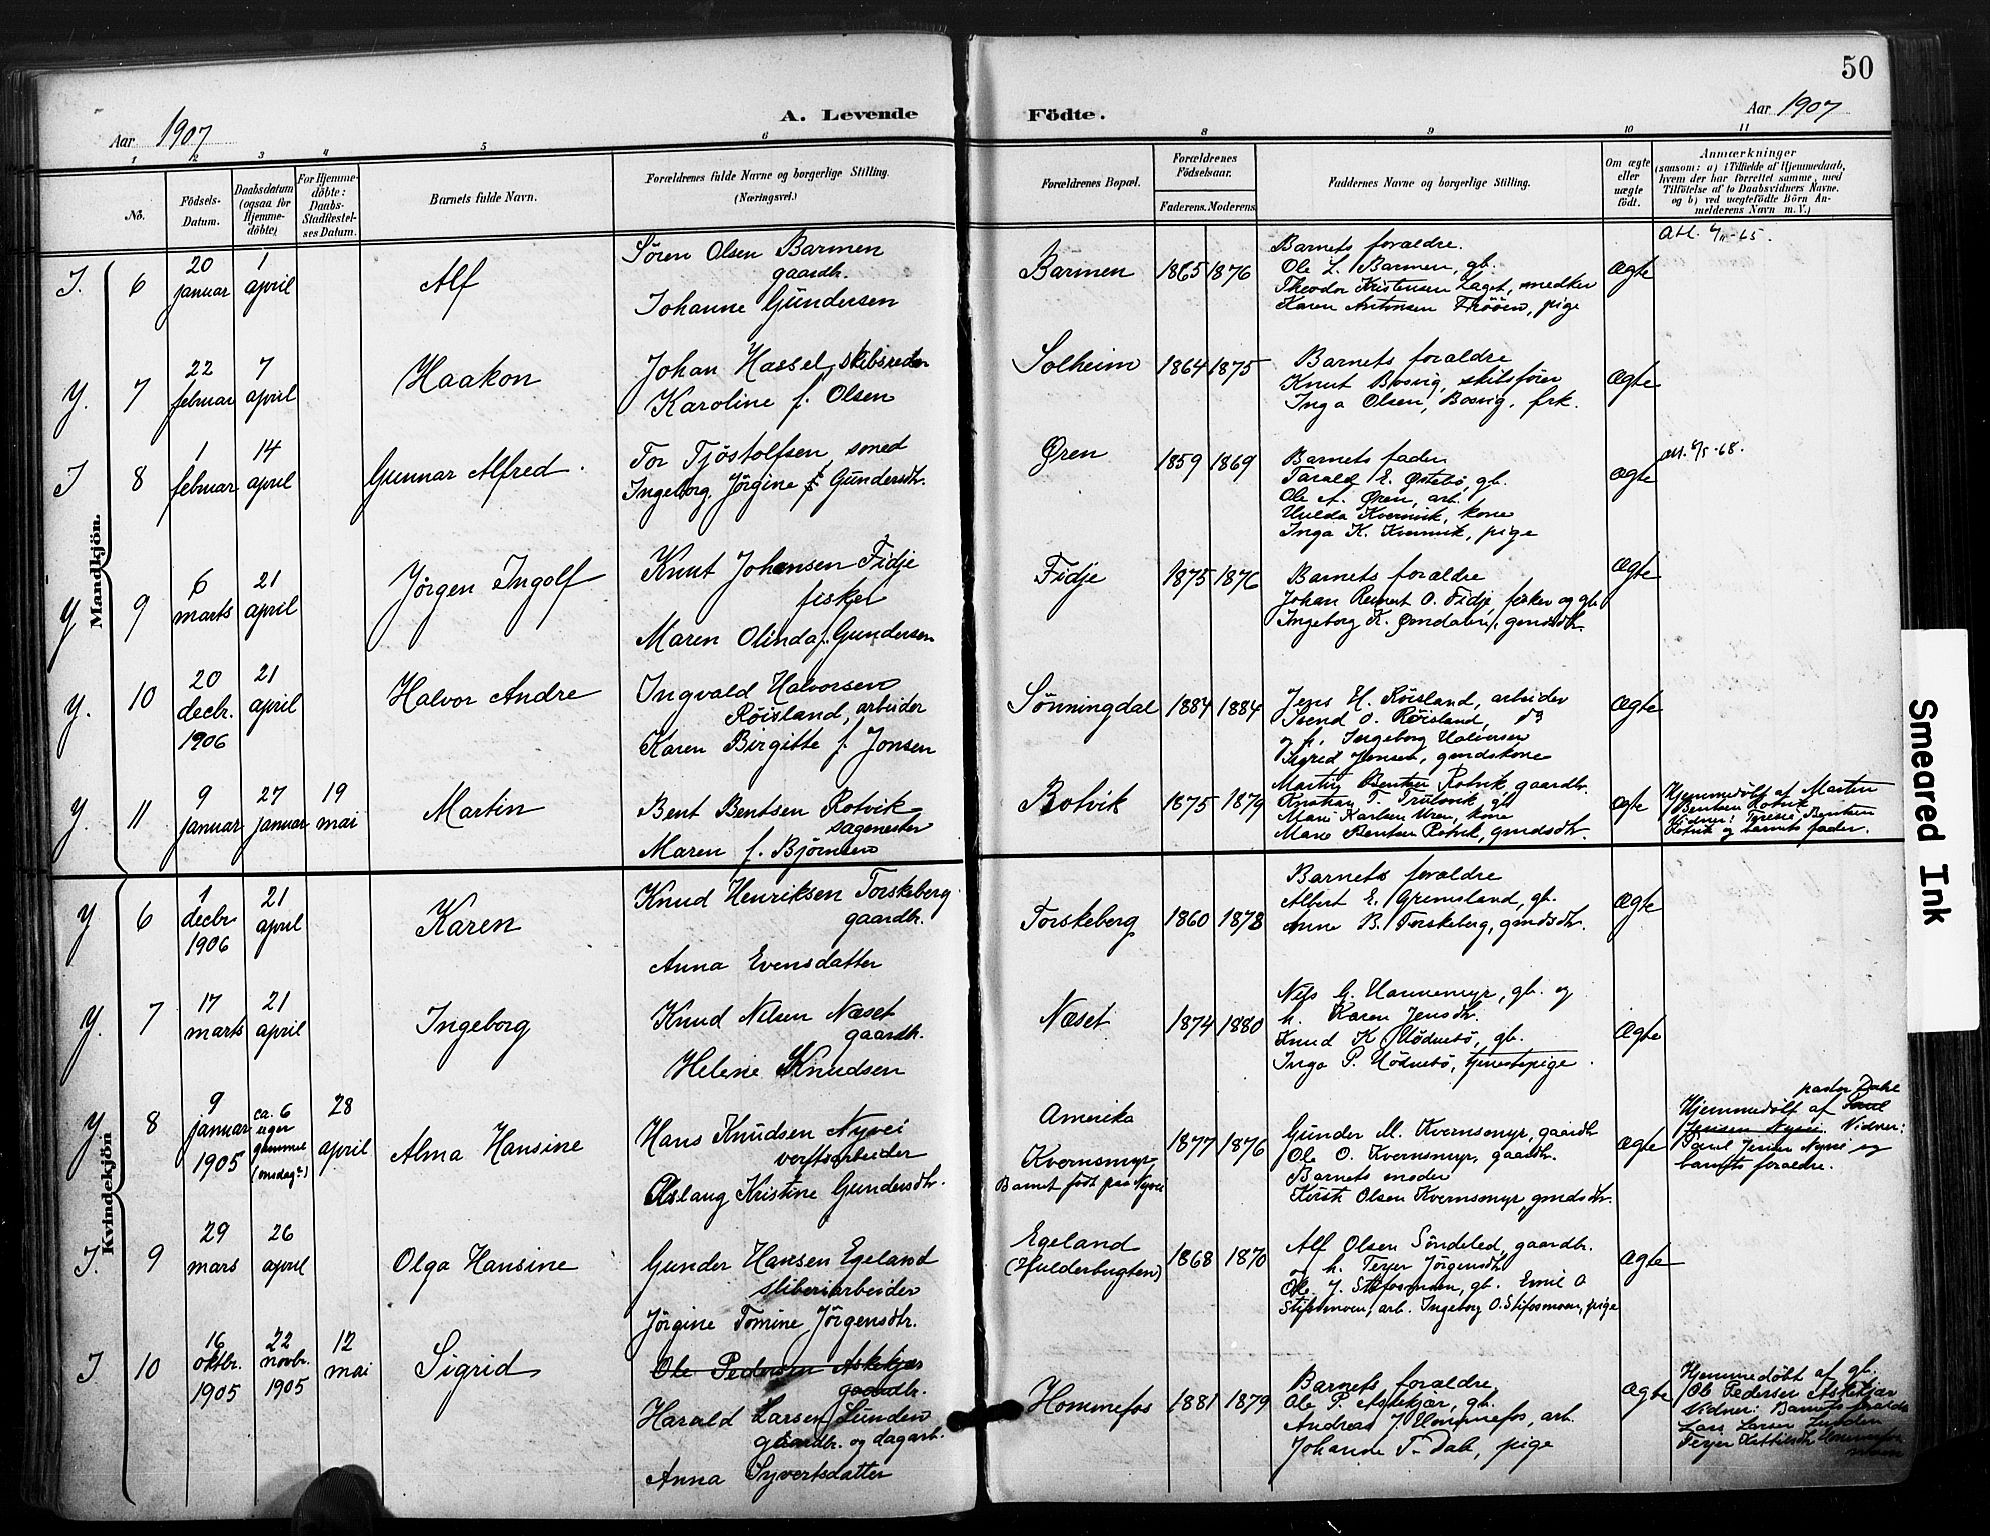 50
Aar 1907
A. Levende
Födte.
Aar 1907
1
2
3
4
5
6
8
9
10
11
No.
Födsels-
Datum.
Daabsdatum
(ogsaa for
Hjemme-
döbte)
For Hjemme-
döbte:
Daabs-
Stadfæstel-
ses Datum.
Barnets fulde Navn.
Forældrenes fulde Navne og borgerlige Stilling.
(Næringsvei.)
Forældrenes Bopæl.
Forældrenes
Födselsaar.
Faderens.
Moderens.
Faddernes Navne og borgerlige Stilling.
Om ægte
eller
uægte
födt.
Anmærkninger
(saasom: a) i Tilfælde af Hjemmedaab,
hvem der har forrettet samme, med
Tilföielse af to Daabsvidners Navne.
og b) ved uægtefödte Börn An-
melderens Navn m. V.)
Mandkjön.
I. 6
20
januar
1
april
Alf
Søren Olsen Barmen
gaardbr.
Johanne Gündersen
Barmen
1865 1876
Barnets foraldre.
Ole L. Barmen, gb.
Theodor Kristensen Laget, snedker
Karen Antonsen Trööen, pige
Ægte
Att.
Y. 7
22
februar
7
april
Haakon
Johan Hassel, skibsreder
Karoline f. Olsen
Solheim
1864 1875
Barnets foraldre
Knut Bosvig, skibsfører
Inga Olsen, Bosvig, frk.
Ægte
I 8
1
februar
14
april
Gunnar Alfred.
Tor Tjöstolfsen, smed
Ingeborg Jörgine f. Gundersdtr.
Øren
1859 1869
Barnets fader
Tarald E. Østebö, gb.
Ole A. Øren, arb.
Hulda Kvernvik, kone
Inga K. Kvernvik, pige
Ægte
att. 8/5-68.
Y 9
6
marts
21
april
Jørgen Ingolf
Knut Johansen Fidje
fisker
Maren Olinda f. Gundersen
Fidje
1875 1876
Barnets foraldre
Johan Reinert O. Fidje, fisker og gb
Ingeborg K. gmdsdtr.
Ægte
Y. 10
20
decbr.
1906
21
april
Halvor Andre
Ingvald Halvorsen
Röisland, arbeider
Karen Birgitte f. Jonsen
Sönningdal
1884 1884
Jens H. Röisland, arbeider
O. Röisland, do
og h. Ingeborg Halvorsen
Sigrid Jensen, gmdskone
Ægte
Y. 11
9
januar
27
januar
19
mai
Martin
Bent Bentsen Rotvik
sagmester
Maren f. Björnsen
Rotvik
1875 1879
Martin Bentsen Rotvik, gaardbr.
Marie Karlsen Uren, kone
Marie Bentsen Rotvik, gmdsdtr.
Ægte
Hjemmedøbt af Martin
Bentsen Rotvik
Vidner: Terese Bentsen
Rotvik og barnets fader.
Kvindekjön
Y 6
1
decbr
1906
21
april
Karen
Knud Henriksen Torskeberg
gaardbr.
Anna Evensdatter
Torskeberg
1860 1878
Barnets foraldre
Albert E. Grimsland, gb.
Anne B. Torskeberg, gmdsdtr.
Ægte
Y. 7
17
marts
21
april
Ingeborg
Knud Nilsen Næset
gaardbr.
Helene Knudsen
Næset
1874 1880
Nils G. Hannemyr, gb. og
h. Karen Jensdtr.
Knud K. Mödnebö, gb.
Inga P. Mödnebö, tjenestepige.
Ægte
Y 8
9
januar
1905
ca. 6
uger
gammel
(onsdag)
28
april
Alma Hansine
Hans Knudsen Nyvei
verftsarbeider
Aslaug Kristine Gundersdtr.
Amerika
Kvernsmyr
Barnet födt paa Nyvei
1877 1876
Gunder M. Kvernsmyr, gaardb
Ole O. Kvernsmyr, gaardbr.
Barnets moder
Kirsti Olsen Kvernsmyr, gmdsdtr.
Ægte
pastor Dahl
Hjemmedøbt af Paul
Jensen Nyvei. Vidner:
Paul Jensen Nyvei og
barnets foraldre.
I. 9
29
mars
26
april
Olga Hansine
Gunder Hansen Egeland
sliberiarbeider
Jörgine Tomine Jörgensdtr.
Egeland
(Hulderbugten)
1868 1870
Alf Olsen Söndeled, gaardbr.
og h. Terjer Jörgensdtr.
Ole J. Stifosmoen, gb. Emil O
Stifosmoen, arb. Ingeborg O. Stifosmoen, pige
Ægte
I 10
16
oktbr.
1905
22
novbr.
1905
12
mai
Sigrid
Ole Pedersen Askekjær
gaardbr.
Harald Larsen Lunden
gaardbr. og dagarb.
Anna Syvertsdatter
Hommefos
1881 1879
Barnets foraldre.
Ole P. Askekjær, gb.
Andreas J. Hommefos, arb.
Johanne T. Dal, pige
Ægte
Hjemmedöbt af gb.
Ole Pedersen Askekjær
Vidner: Barnets foraldre
Lars Larsen Lunden
Terjer Kittilsdtr. Hommefos
Smeared Ink